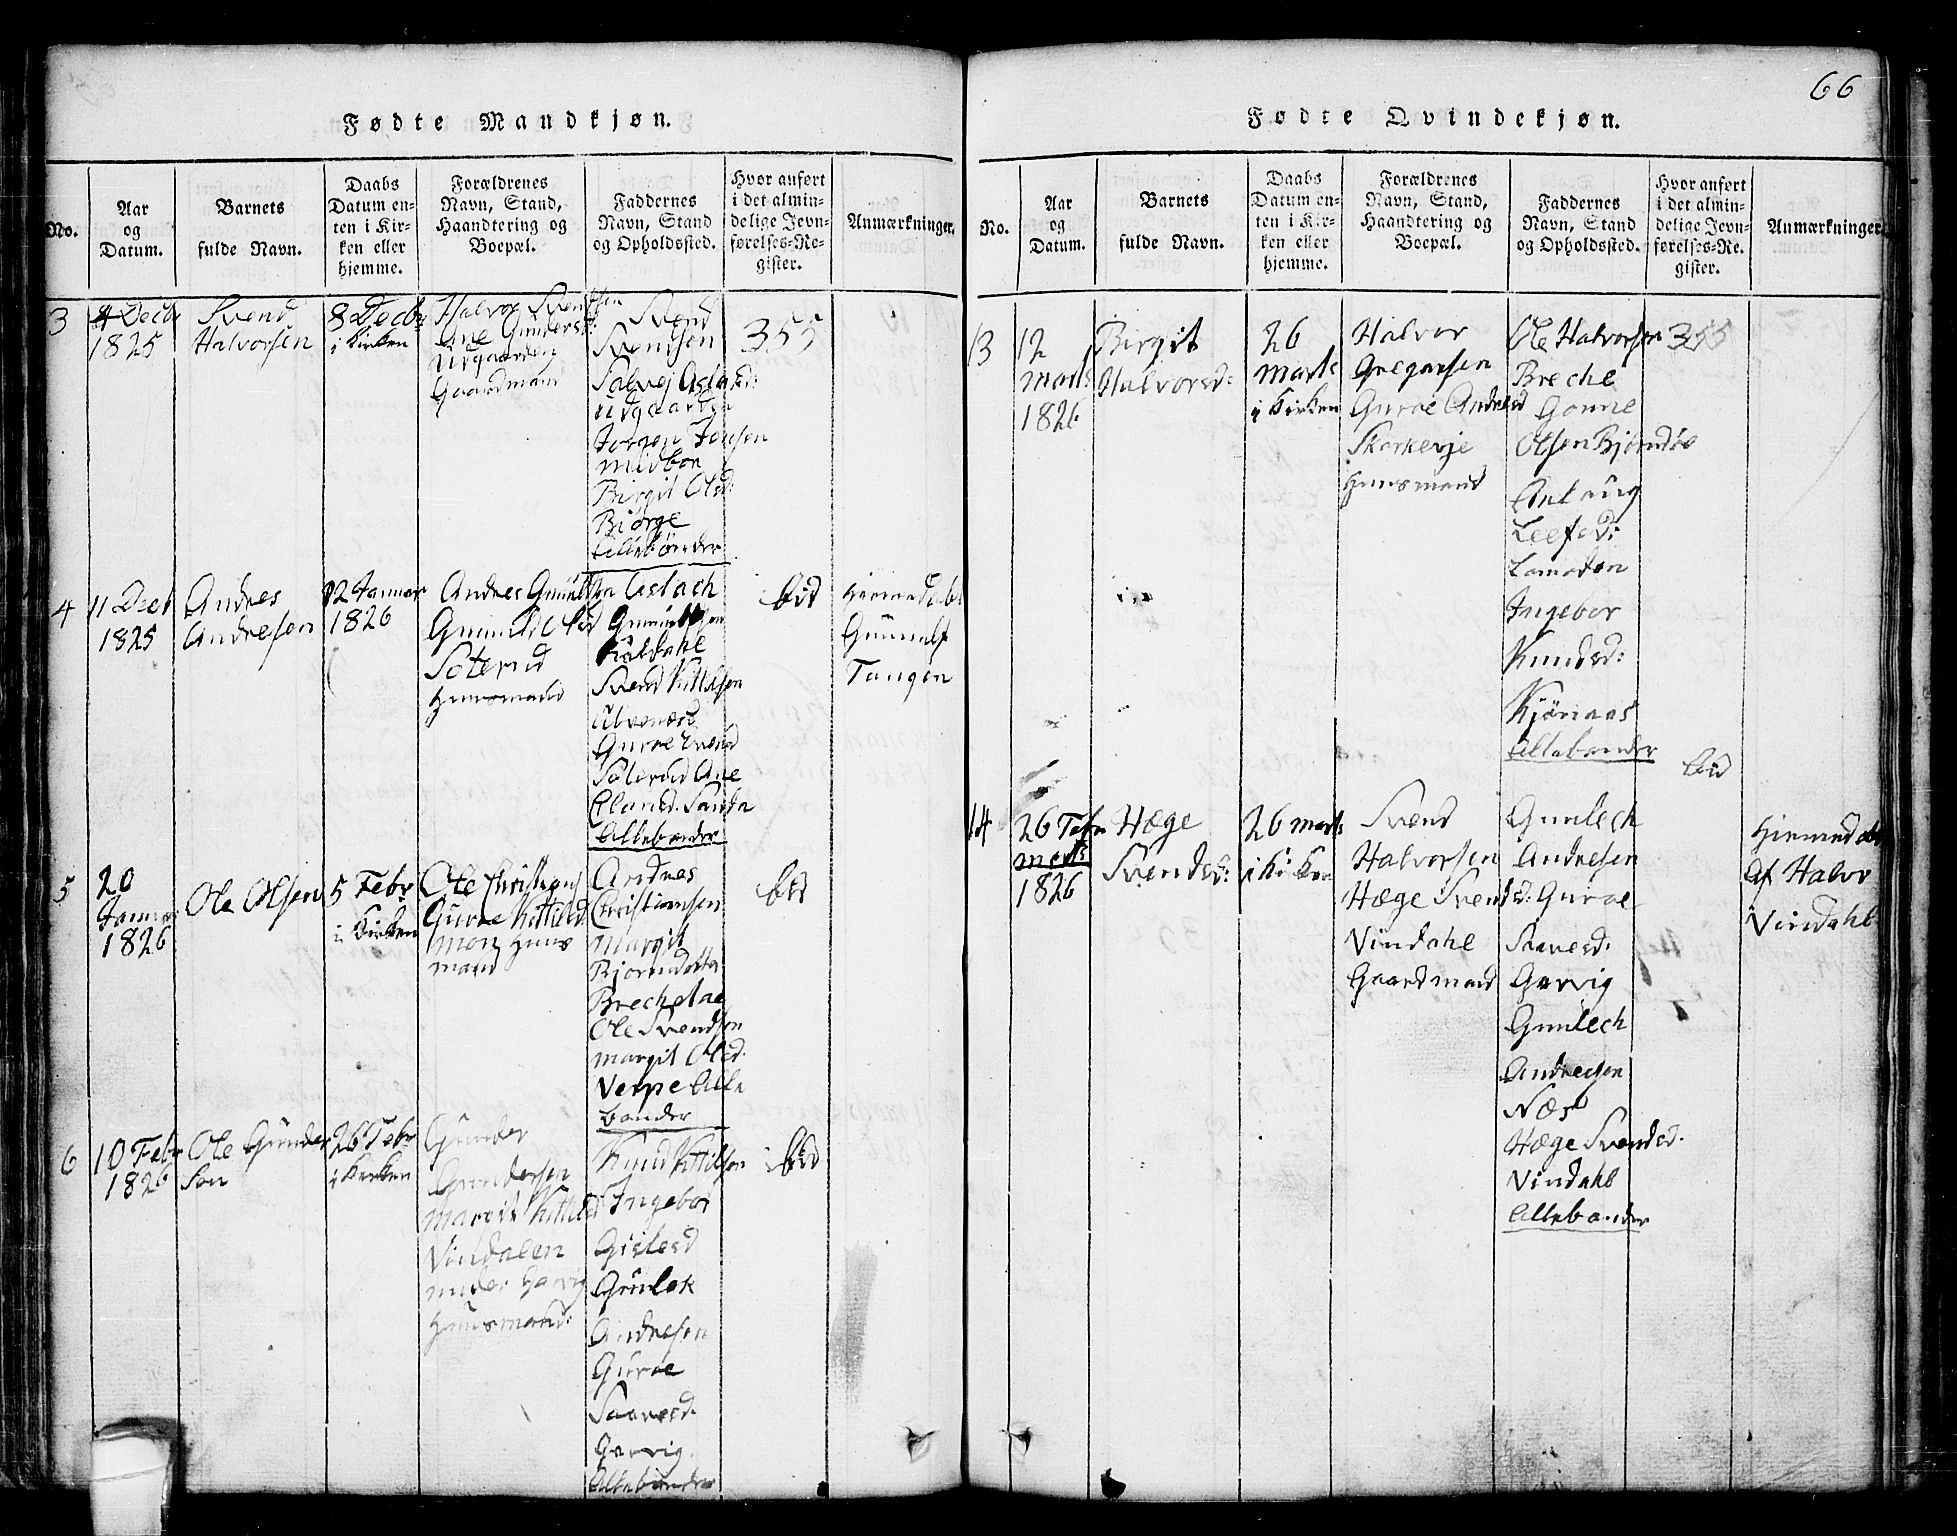 66
Fødte Mandkjøn.
No.
Aar
og
Datum.
Barnets
fulde Navn.
Daabs
Datum en-
ten i Kir-
ken eller
hjemme.
Forældrenes
Navn, Stand,
Haandtering og
Boepæl.
Faddernes
Navn, Stand
og Opholdssted.
Hvor anført
i det almin-
delige Jevn-
førelses-Re-
gister.
Anmærkninger.
3
4 Decbr
1825
Svend
Halvorsen
8 Decbr
i Kirken
Halvor Svendsen
Ane Gundersd:
Uigaarden
Gaardmand
Svend
Svendsen
Solvej Aslaksd:
Uigaarden
Jorgen Jonsen
Midboe
Birgit Olsd:
Biørge
Allebønder
355
4
11 Decb
1825
Andres
Andresen
12 Januar
1826
Andres Gunulfsen
Gunuld Olsd
Soterud
Huusmand
Aslach
Gunulfsen
Kaasdahl
Svend Kittilsen
Guroe Svensd
Soterud Ane
Olansd. Sanda
Allebønder
bid
Hiemedøbt
Gunulf
Tangen
5
20
Januar
1826
Ole Olsen
5 Febr
i Kirken
Ole Christians
Guroe Kittilsd
Moen Huus
mand
Andres
Christiansen
Margit
Bjornsdatter
Brecheloe
Ole Svendsen
Margit Olsd.
Verpe Alle
bønder
bid
6
10 Febr
1826
Ole Gunder
Søn
26 Febr
i Kirken
Gunder
Gundersen
Margit Kittilsd
Vindalen
under Garvig
Huusmand:
Knud Kittilsen
Ingebor
Gislesd
Gunlek
Andresen
Guroe
Saavesd.
Garvig.
Allebønder
bid
Fødte Qvindekjøn.
No.
Aar
og
Datum.
Barnets
fulde Navn.
Daabs
Datum en-
ten i Kir-
ken eller
hjemme.
Forældrenes
Navn, Stand,
Haandtering og
Boepæl.
Faddernes
Navn, Stand
og Opholdssted.
Hvor anført
i det almin-
delige Jevn-
førelses-Re-
gister.
Anmærkninger.
13
12
Marts
1826
Birgit
Halvorsd:
26
Marts
i Kirken
Halvor
Gregarsen
Guroe Andresd
Skorkevje
Huusmand
Ole Halvorsen
Breche
Gonne
Olsen Bjørndøe
Anlaug
Leefsd:
Ingebor
Knudsd:
Kjønaas
Allebønder
355
14
26 Febr
Marts
1826
Hæge
Svendsd:
26 Marts
i Kirken
Svend
Halvorsen
Hæge Svendsd:
Vindahl
Gaardmand
Gunlech
Andresen
Guroe
Saavesd:
Garvig
Gunlech
Andresen
Næs
Hæge Svendsd.
Vindahl
Allebønder
bid
Hiemmedøbt
af Halvr
Vindahl